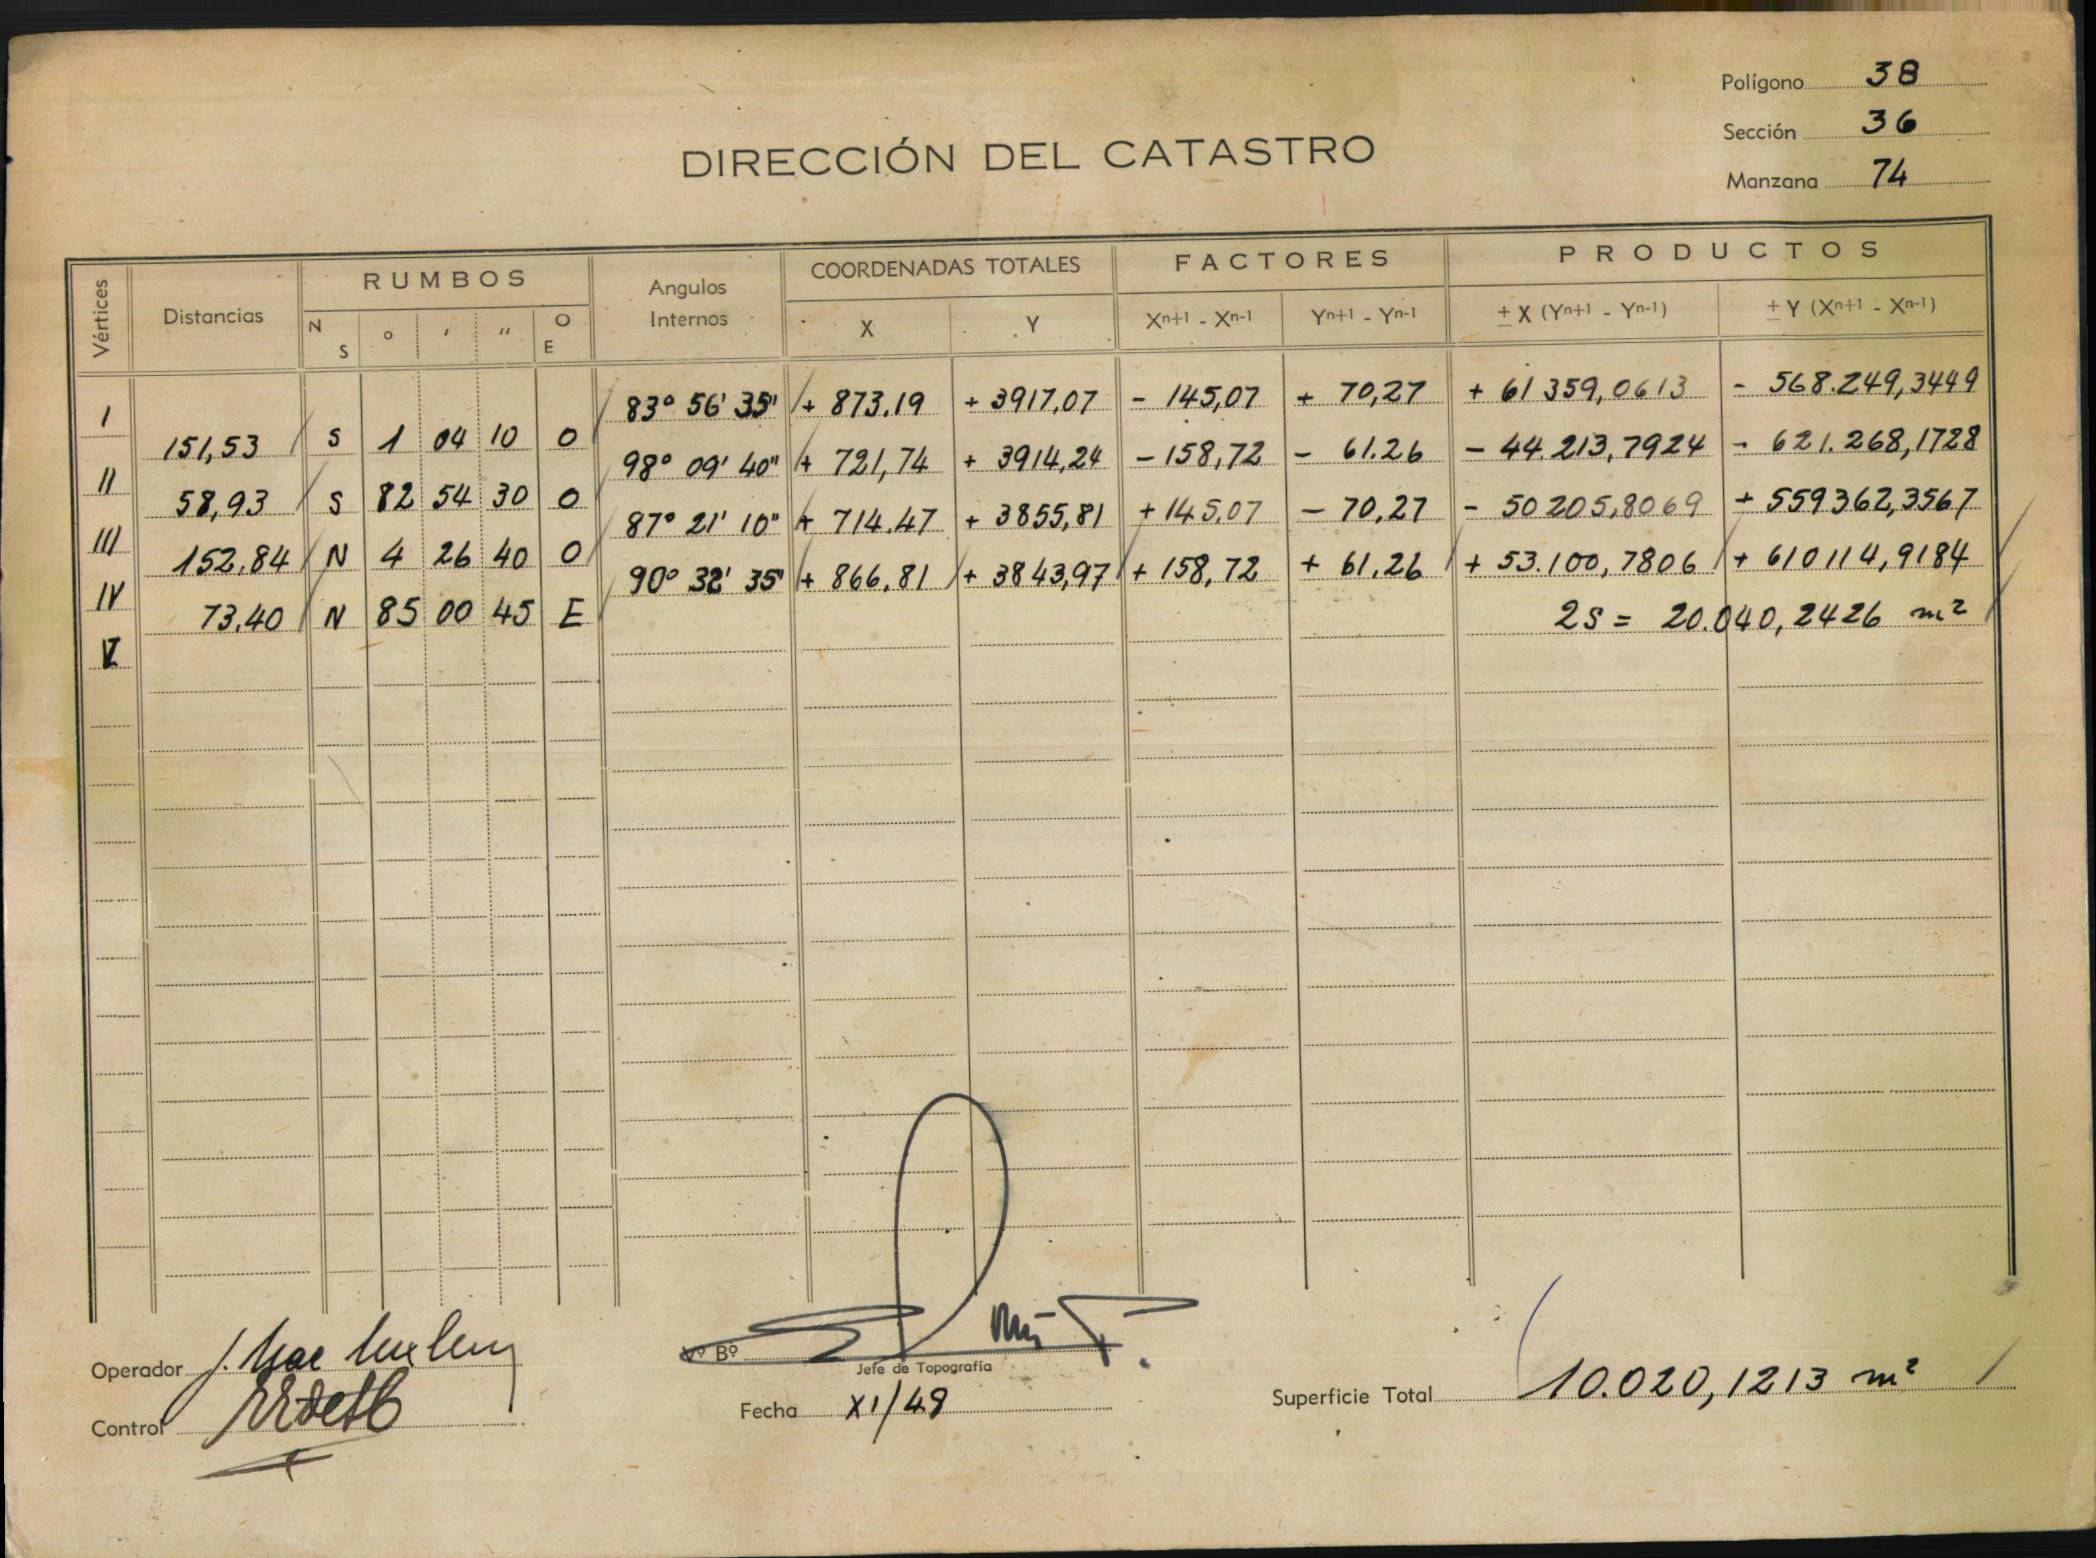 Polígono 38
Sección 36
Manzana 74
DIRECCIÓN DEL CATASTRO
Vértices Distancias RUMBOS Angulos Internos COORDENADAS TOTALES FACTORES PRODUCTOS
N S ° ' " O E X Y Xn+1 - Xn-1 Yn+1 - Yn-1 ± X (Yn+1 - Yn-1) ± Y (Xn+1 - Xn-1)
I 83° 56' 35" + 873.19 + 3917,07 - 145,07 + 70,27 + 61 359,0613 - 568.249,3449
151,53 S 1 04 10 O
II 98° 09' 40" + 721,74 + 3914,24 - 158,72 - 61.26 - 44.213,7924 - 621.268,1728
58,93 S 82 54 30 O
III 87° 21' 10" + 714.47 + 3855,81 + 145,07 - 70,27 - 50 205,8069 + 559362,3567
152,84 N 4 26 40 O
IV 90° 32' 35" + 866.81 + 3843,97 + 158,72 + 61,26 + 53.100,7806 + 610114,9184
73,40 N 85 00 45 E
V 2S = 20.040,2426 m²
Operador
Control
Vº Bº
Jefe de Topografía
Fecha XI/49
Superficie Total 10.020,1213 m²